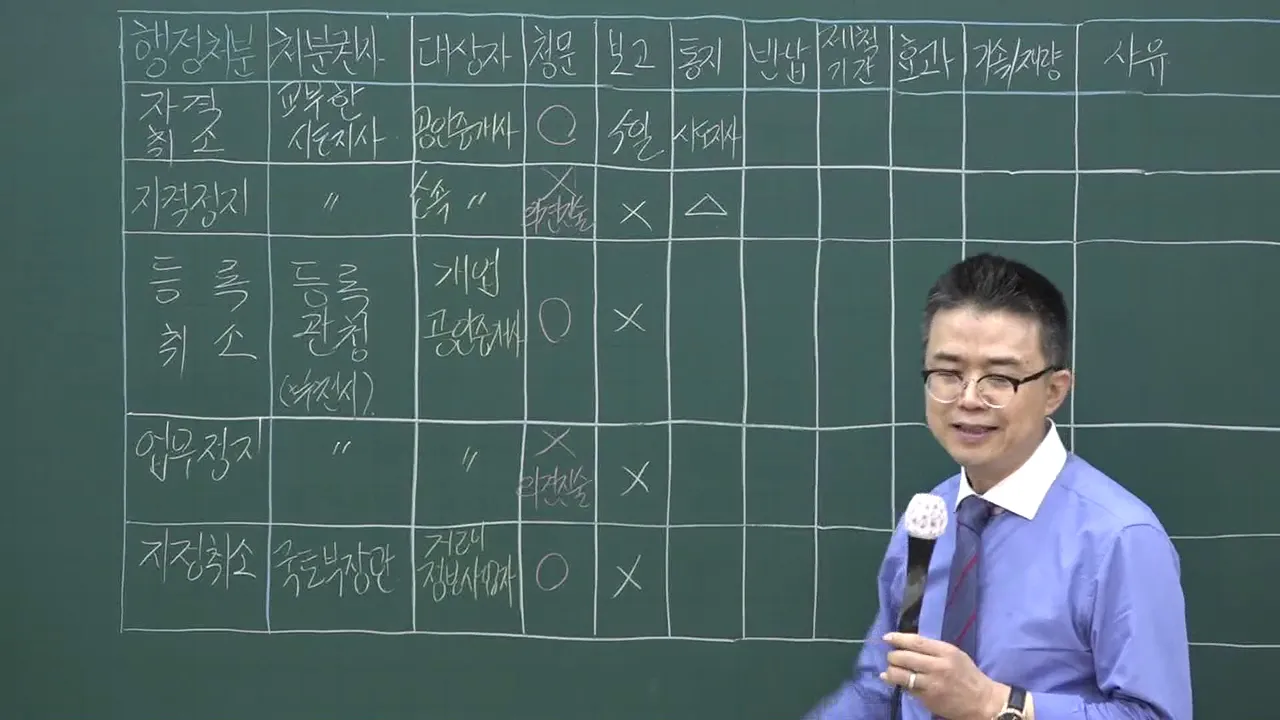 행정처분 처분권자 대상자 청문 보고 통지 반납 제척기간 효과 기속/재량 사유
자격취소 교부한 시·도지사 공인중개사 ○ 5일 시·도지사
자격정지 〃 소속 〃 X 의견진술 X △
등록취소 등록관청 개업 공인중개사 ○ X
업무정지 〃 〃 X 의견진술 X
지정취소 국토부장관 거래정보사업자 ○ X